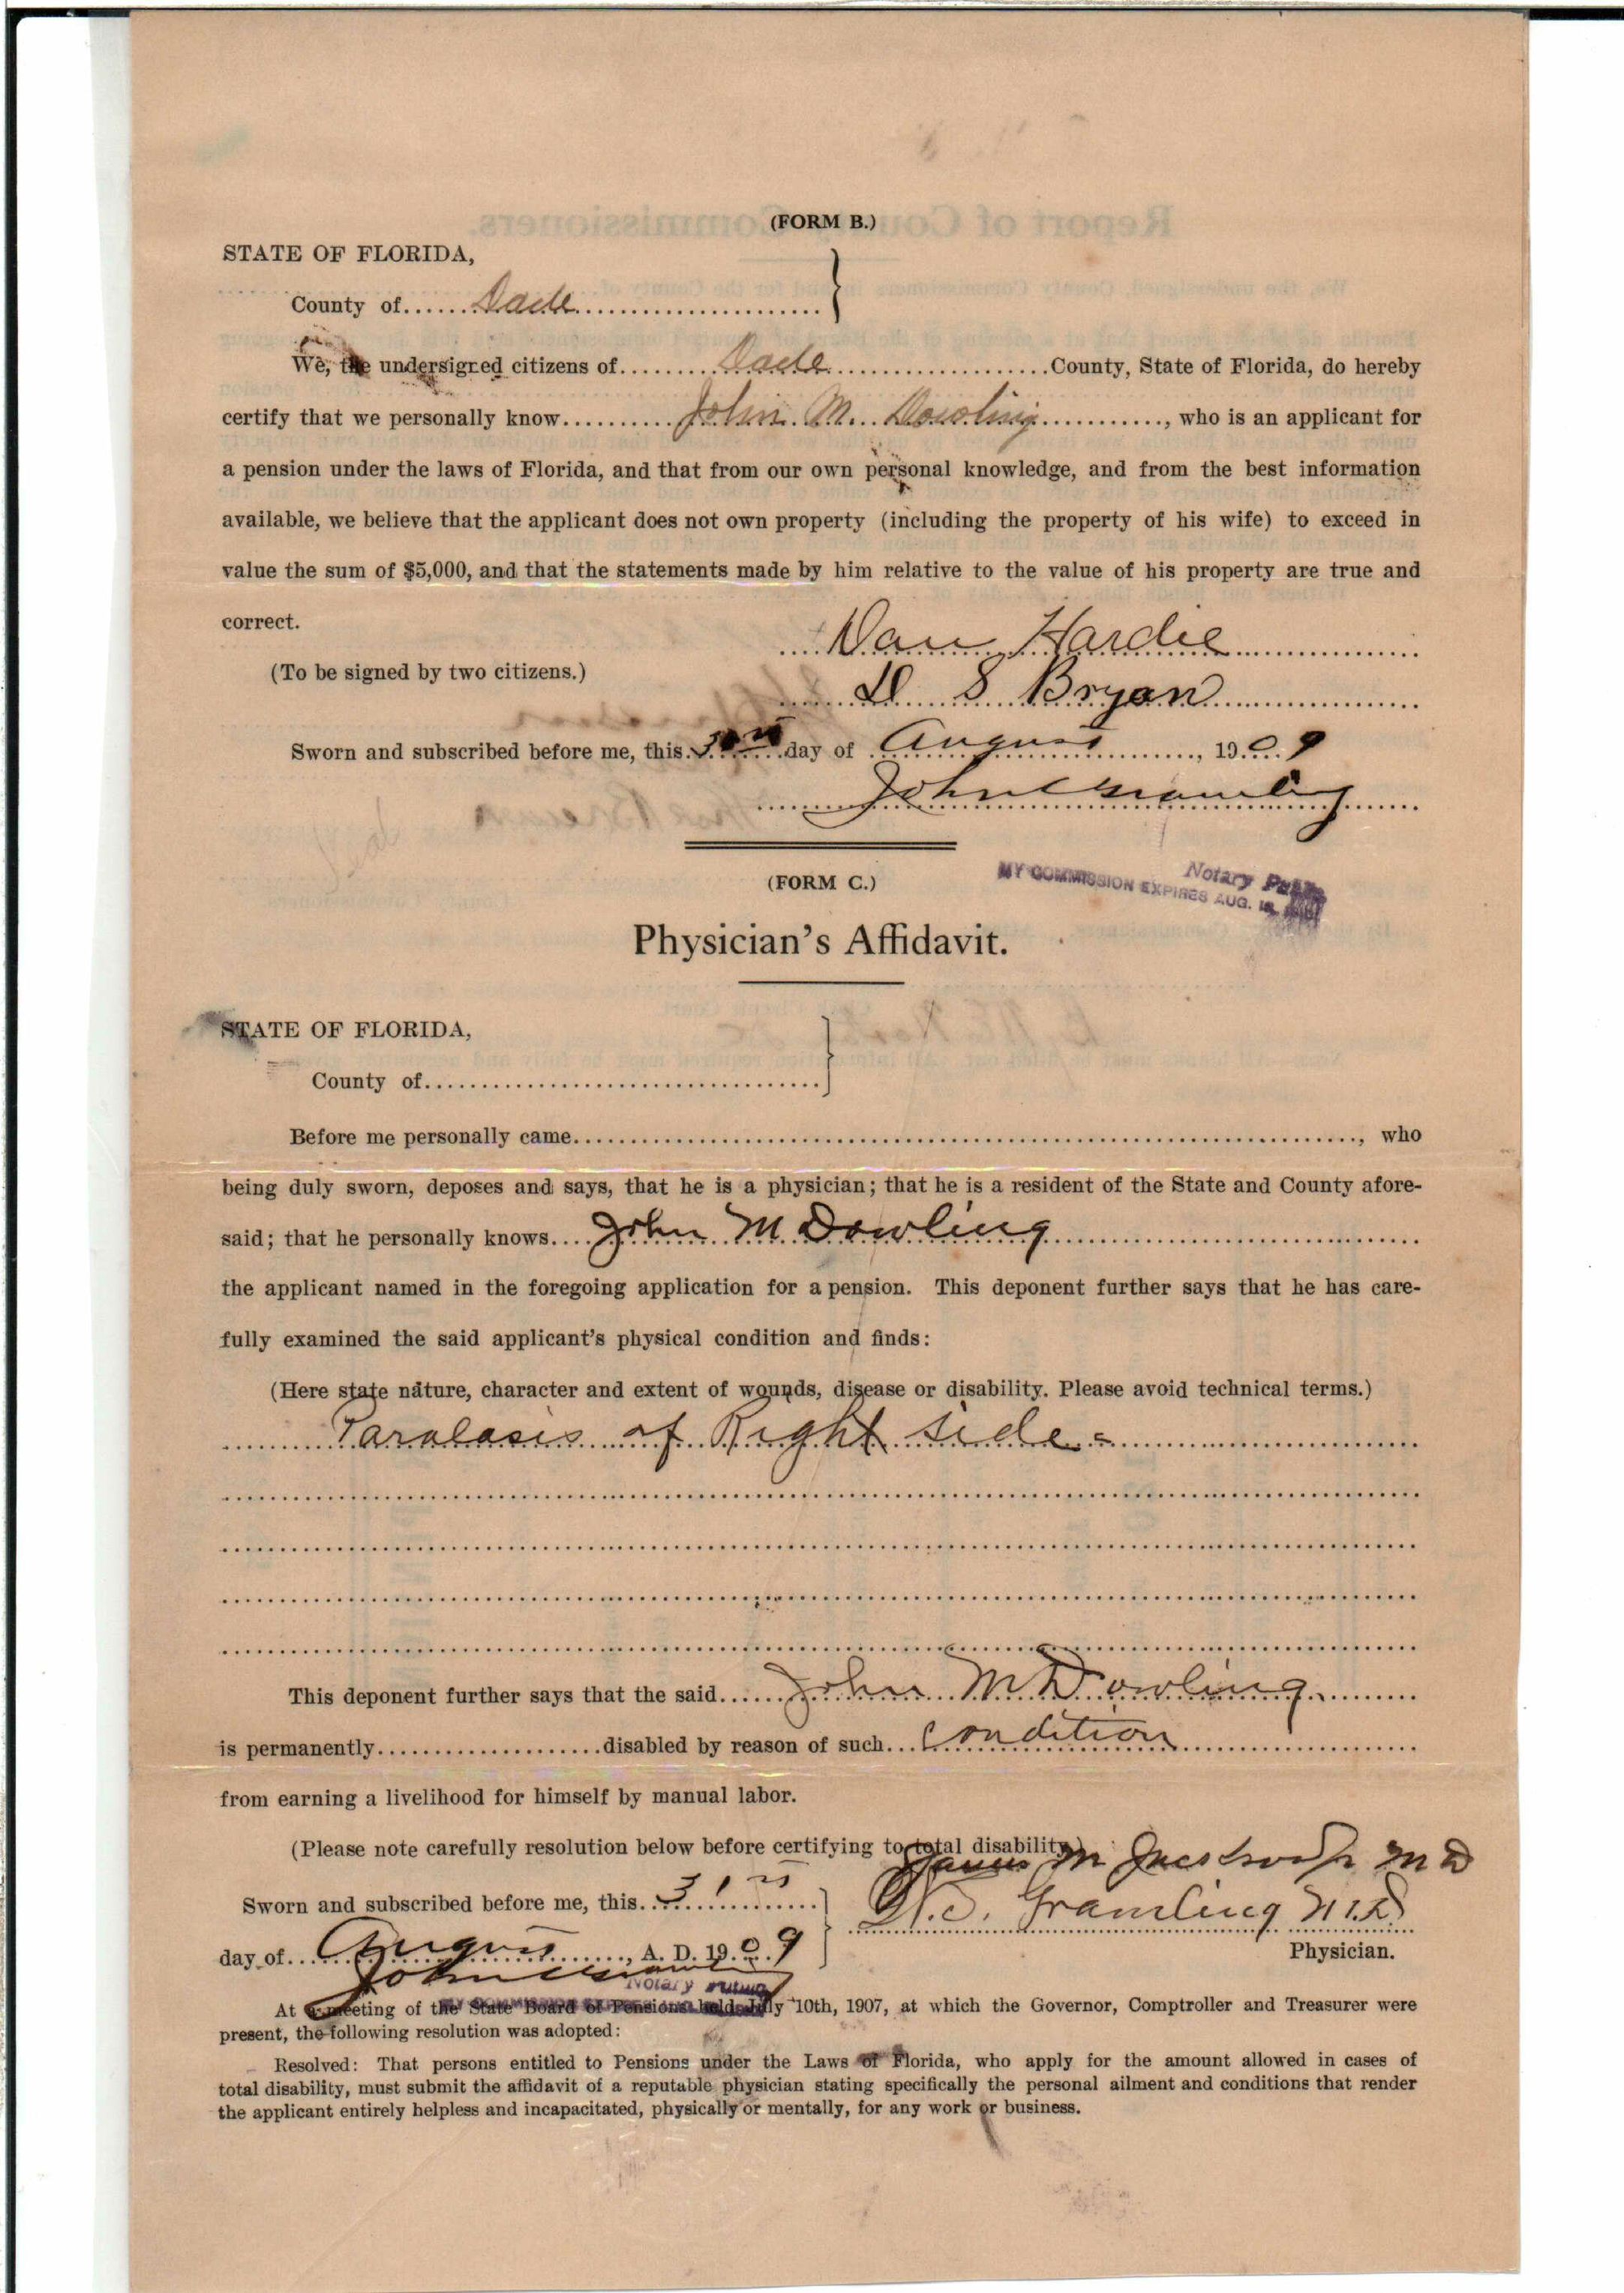 (FORM B.)
STATE OF FLORIDA,
County of......Dade......
We, the undersigned citizens of......Dade......County, State of Florida, do hereby
certify that we personally know......John M. Dowling......, who is an applicant for
a pension under the laws of Florida, and that from our own personal knowledge, and from the best information
available, we believe that the applicant does not own property (including the property of his wife) to exceed in
value the sum of $5,000, and that the statements made by him relative to the value of his property are true and
correct.
Dan Hardie
(To be signed by two citizens.)
D S Bryan
Sworn and subscribed before me, this......day of August......, 1909
John C Gramling
Notary Public
MY COMMISSION EXPIRES AUG.
(FORM C.)
Physician's Affidavit.
STATE OF FLORIDA,
County of......
Before me personally came......, who
being duly sworn, deposes and says, that he is a physician; that he is a resident of the State and County afore-
said; that he personally knows....John M Dowling......
the applicant named in the foregoing application for a pension. This deponent further says that he has care-
fully examined the said applicant's physical condition and finds:
(Here state nature, character and extent of wounds, disease or disability. Please avoid technical terms.)
Paralasis of Right side
This deponent further says that the said......John M Dowling......
is permanently......disabled by reason of such...Condition......
from earning a livelihood for himself by manual labor.
(Please note carefully resolution below before certifying to total disability.)
James M M D
Sworn and subscribed before me, this...31st......
Gramling M.D.
day of....August......, A. D. 1909
Physician.
John C Gramling
Notary Public
At a meeting of the State Board of Pensions held July 10th, 1907, at which the Governor, Comptroller and Treasurer were
present, the following resolution was adopted:
Resolved: That persons entitled to Pensions under the Laws of Florida, who apply for the amount allowed in cases of
total disability, must submit the affidavit of a reputable physician stating specifically the personal ailment and conditions that render
the applicant entirely helpless and incapacitated, physically or mentally, for any work or business.